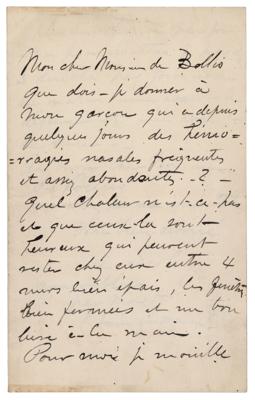 Mon cher Monsieur de Bollis
que dois-je donner à
mon garçon qui a depuis
quelques jours des hémo-
=rragies nasales fréquentes
et assez abondantes. - ? -
quel chaleur n'est-ce-pas
et que ceux-là sont
heureux qui peuvent
rester chez eux entre 4
murs bien épais, les fenêtres
bien fermées et un bon
livre à-la main.
Pour moi je mouille